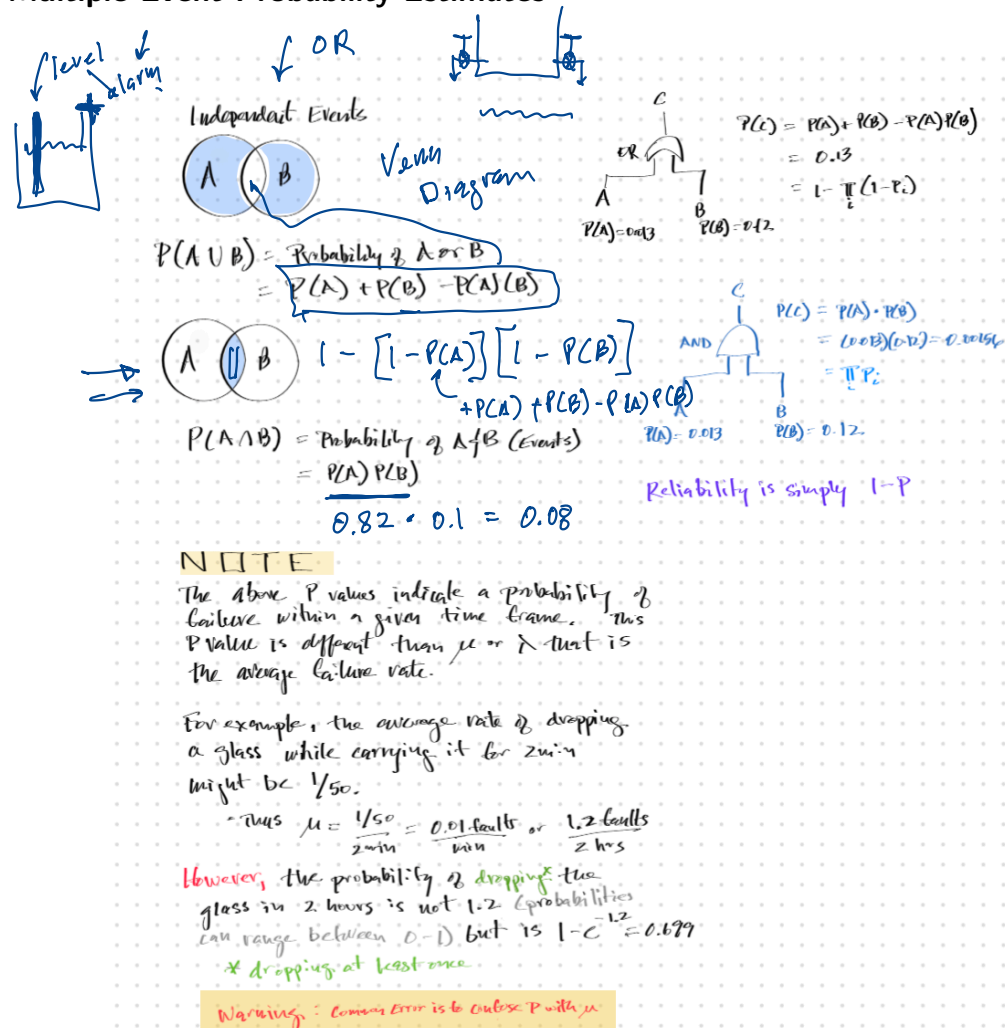 Multiple Event Probability Estimates
OR
level
alarm
Independent Events
A B
Venn
Diagram
P(A ∪ B) = Probability of A or B
= P(A) + P(B) - P(A)(B)
C
OR
A
B
P(A)=0.013 P(B)=0.12
P(C) = P(A) + P(B) - P(A)P(B)
= 0.13
= 1 - π(1-Pi)
i
A B
1 - [1-P(A)][1 - P(B)]
+P(A) + P(B) - P(A) P(B)
P(A∩B) = Probability of A & B (Events)
= P(A) P(B)
0.82 · 0.1 = 0.08
C
AND
A
B
P(A) = 0.013 P(B) = 0.12
P(C) = P(A) · P(B)
= (0.013)(0.12) = 0.00156
= π Pi
i
Reliability is simply 1-P
NOTE
The above P values indicate a probability of
failure within a given time frame. This
P value is different than μ or λ that is
the average failure rate.
For example, the average rate of dropping
a glass while carrying it for 2min
might be 1/50.
- Thus μ = 1/50 / 2min = 0.01 faults / min or 1.2 faults / 2 hrs
However, the probability of dropping* the
glass in 2 hours is not 1.2 (probabilities
can range between 0-1) but is 1-e^-1.2 = 0.699
* dropping at least once
Warning: Common Error is to confuse P with μ